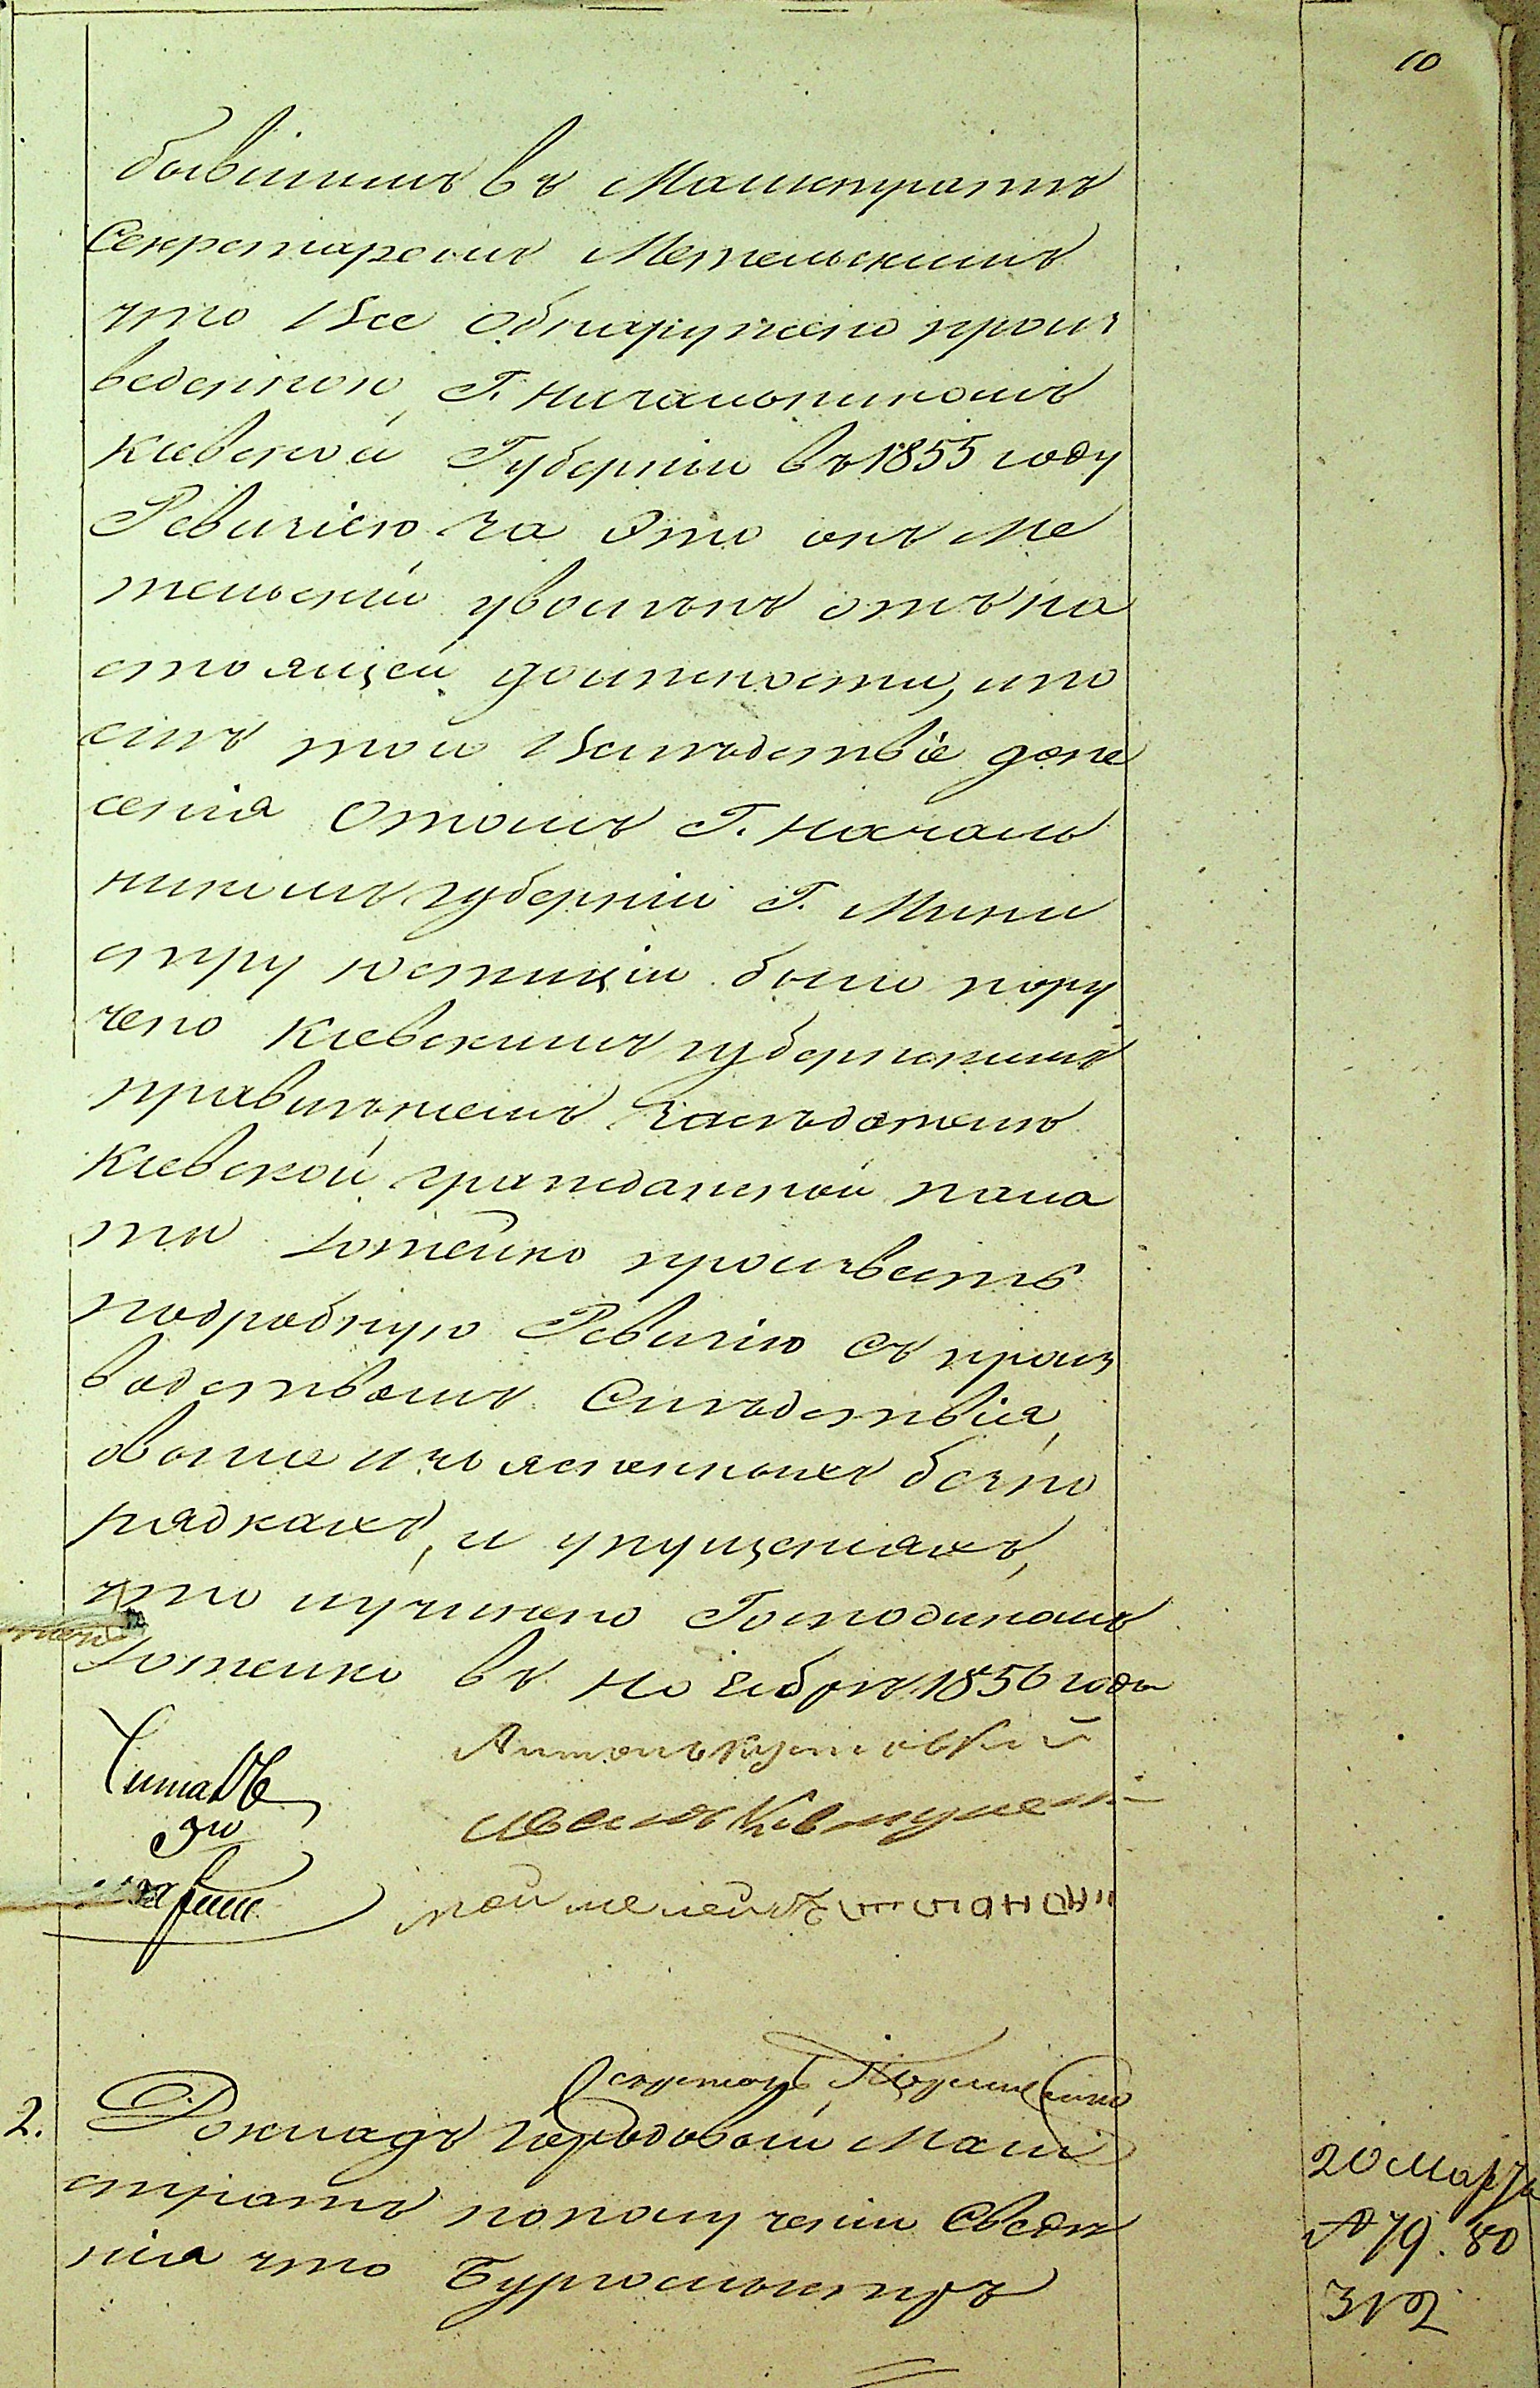 10
бывшимъ въ Магистратѣ
Секретаремъ Метельскимъ
что Все обнаружено произ
веденною Г. Начальникомъ
Кіевской Губерніи въ 1855 году
Ревизіею за Это онъ Ме
тельскій уволенъ отъ на
стоящей должности, и по
симъ то и Вслѣдствіе доне
сенія Отомъ Г. Началь
никомъ губерніи Г. Мини
стру юстиціи было пору
чено Кіевскимъ губернскимъ
правленіемъ Засѣдателю
Кіевской гражданской пала
ты произвесть
подробную Ревизію съ произ
водствомъ Слѣдствія,
овыше изъясненныхъ безпо
рядкахъ, и упущеніяхъ,
что и учинено Господиномъ
въ Ноябрѣ 1856 года
Читалъ
Антонъ
2. Докладъ Городовой Маги
стратъ по получении Сведѣ
нія что Бургомистръ
20 Марта
№ 79. 80
312